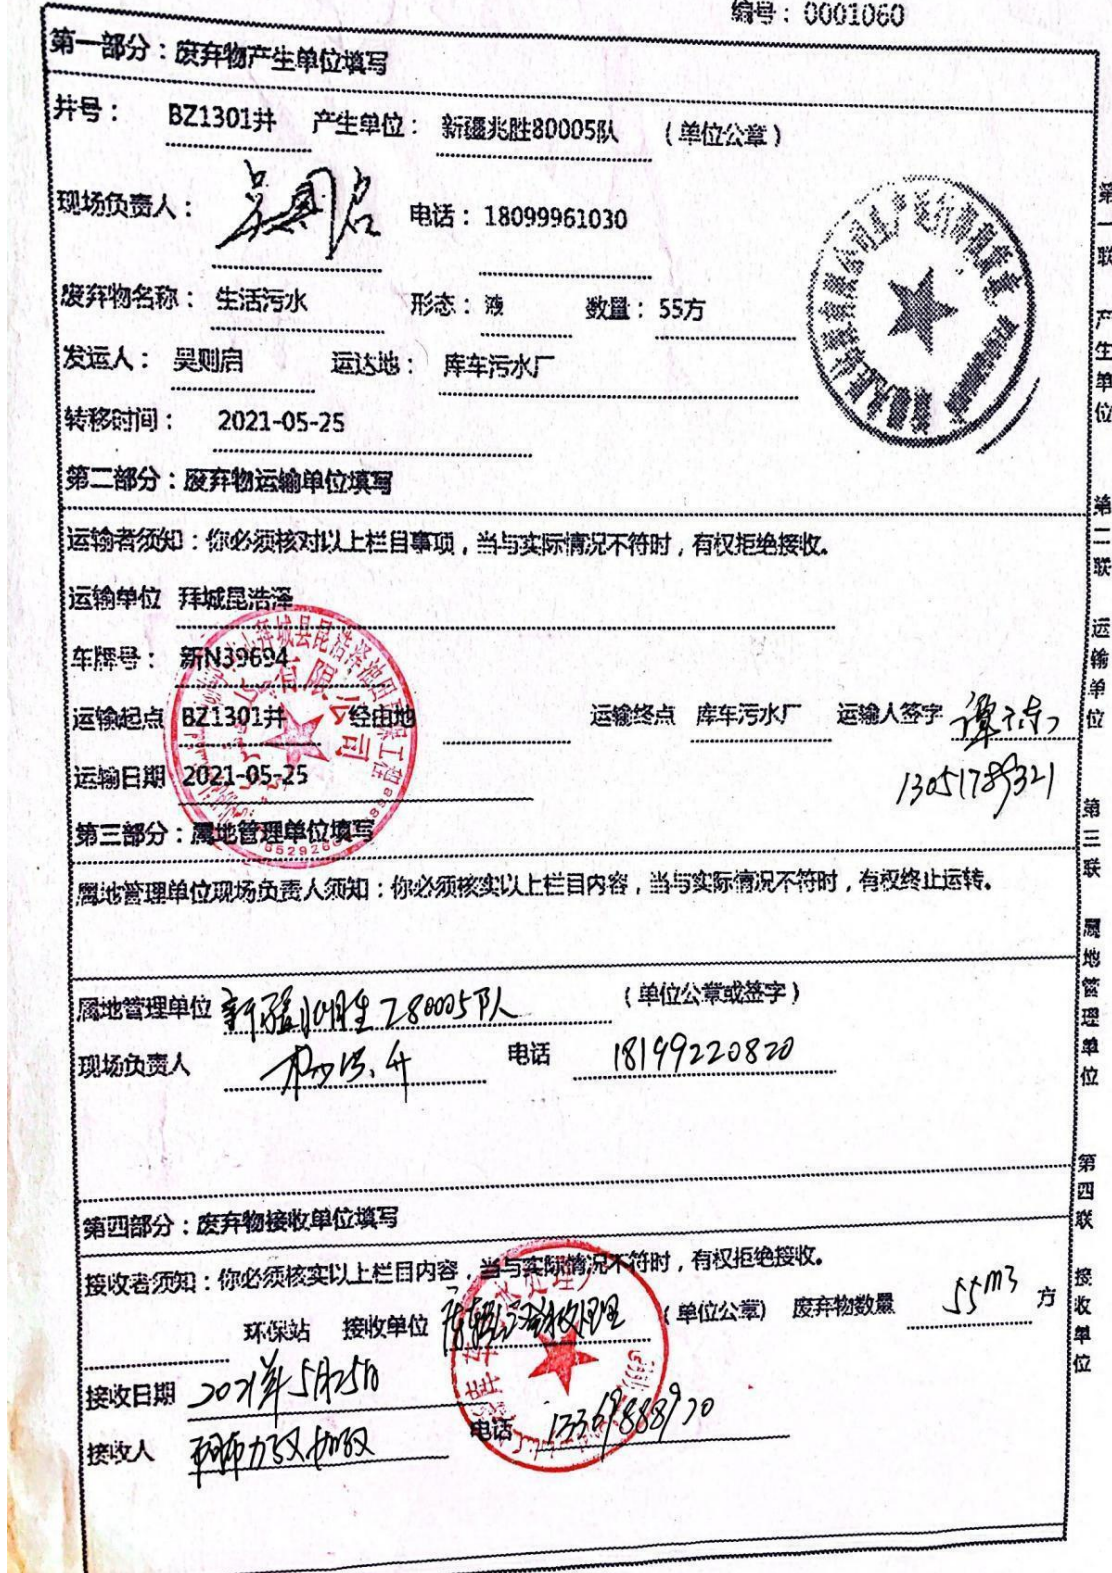 编号：0001060
第一部分：废弃物产生单位填写
井号： BZ1301井 产生单位： 新疆兆胜80005队 （单位公章）
现场负责人： 电话：18099961030
废弃物名称： 生活污水 形态：液 数量：55方
发运人： 吴则启 运达地： 库车污水厂
转移时间： 2021-05-25
第二部分：废弃物运输单位填写
运输者须知：你必须核对以上栏目事项，当与实际情况不符时，有权拒绝接收。
运输单位 拜城昆浩泽
车牌号： 新N39694
运输起点 BZ1301井 经由地 运输终点 库车污水厂 运输人签字
运输日期 2021-05-25 13051789321
第三部分：属地管理单位填写
属地管理单位现场负责人须知：你必须核实以上栏目内容，当与实际情况不符时，有权终止运转。
属地管理单位 新疆兆胜 80005队 （单位公章或签字）
现场负责人 电话 18199220820
第四部分：废弃物接收单位填写
接收者须知：你必须核实以上栏目内容，当与实际情况不符时，有权拒绝接收。
环保站 接收单位 （单位公章） 废弃物数量 55m3 方
接收日期 2021年5月25日
接收人 电话 13369888920
第一联 产生单位 第二联 运输单位 第三联 属地管理单位 第四联 接收单位